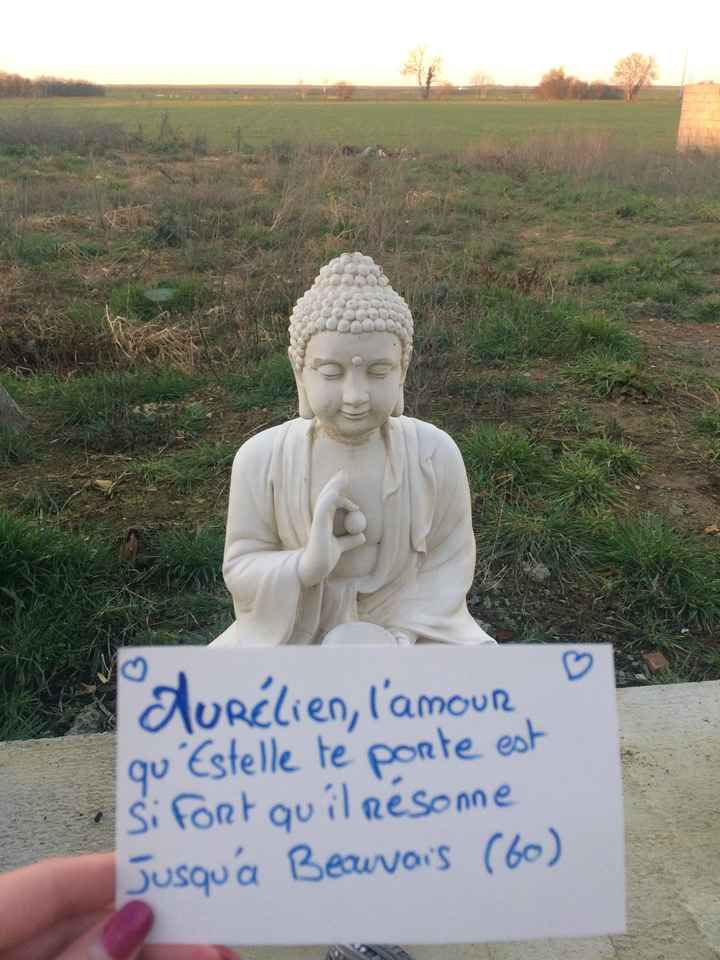 Aurélien, l'amour
qu'Estelle te porte est
si fort qu'il résonne
jusqu'à Beauvais (60)